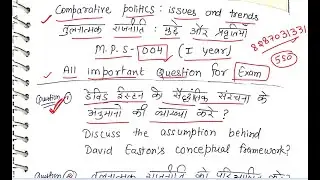 Comparative politics: issues and trends
तुलनात्मक राजनीति: मुद्दे और प्रवृत्तियाँ
M.P.S-004 (I year)
8287031331
550
All important Question for Exam
Question 1
डेविड ईस्टन के सैद्धांतिक संरचना के
अनुमानो की व्याख्या करे?
Discuss the assumption behind
David Easton's conceptual framework?
Question 2 तुलनात्मक राजनीति को परिभाषित करे?